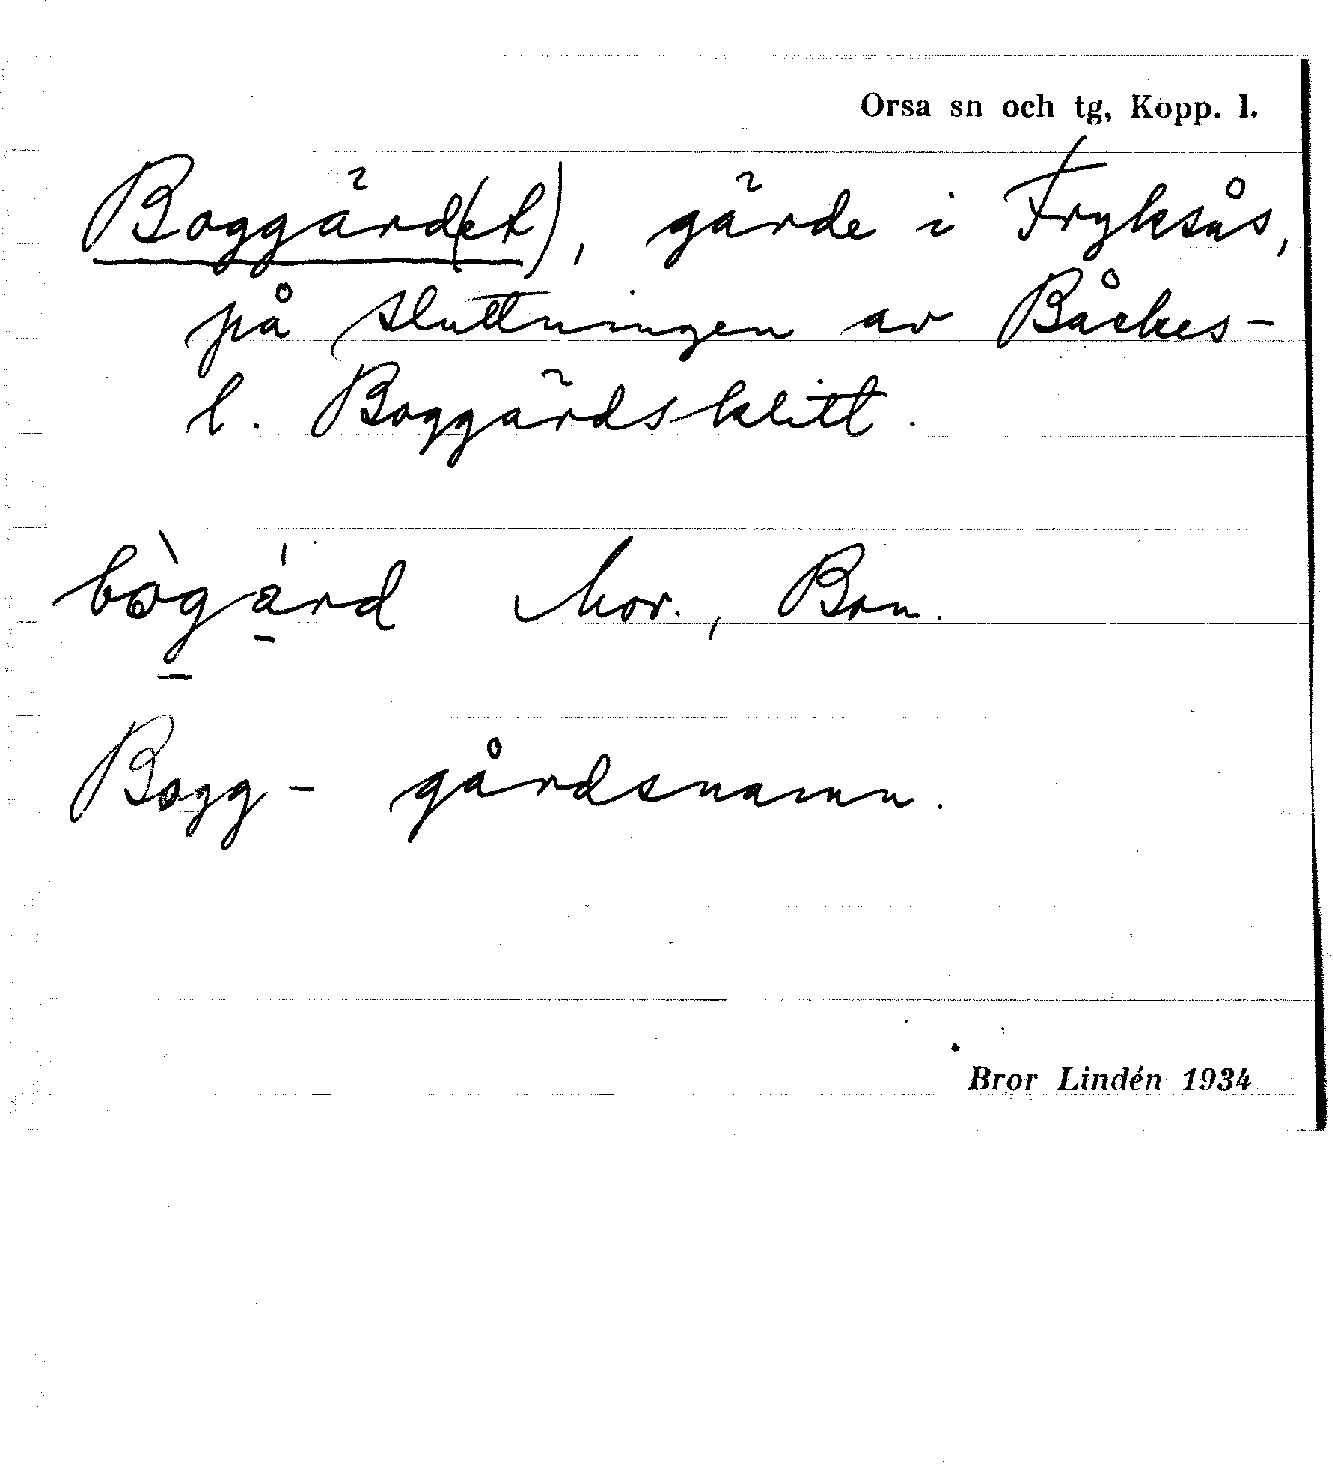 Orsa sn och tg, Kopp. l.
Boggärd(et), gärde i Fryksås,
på sluttningen av Båckes-
l. Boggärdsklitt.
bògárd Mor., Bon.
Bogg- gårdsnamn.
Bror Lindén 1934